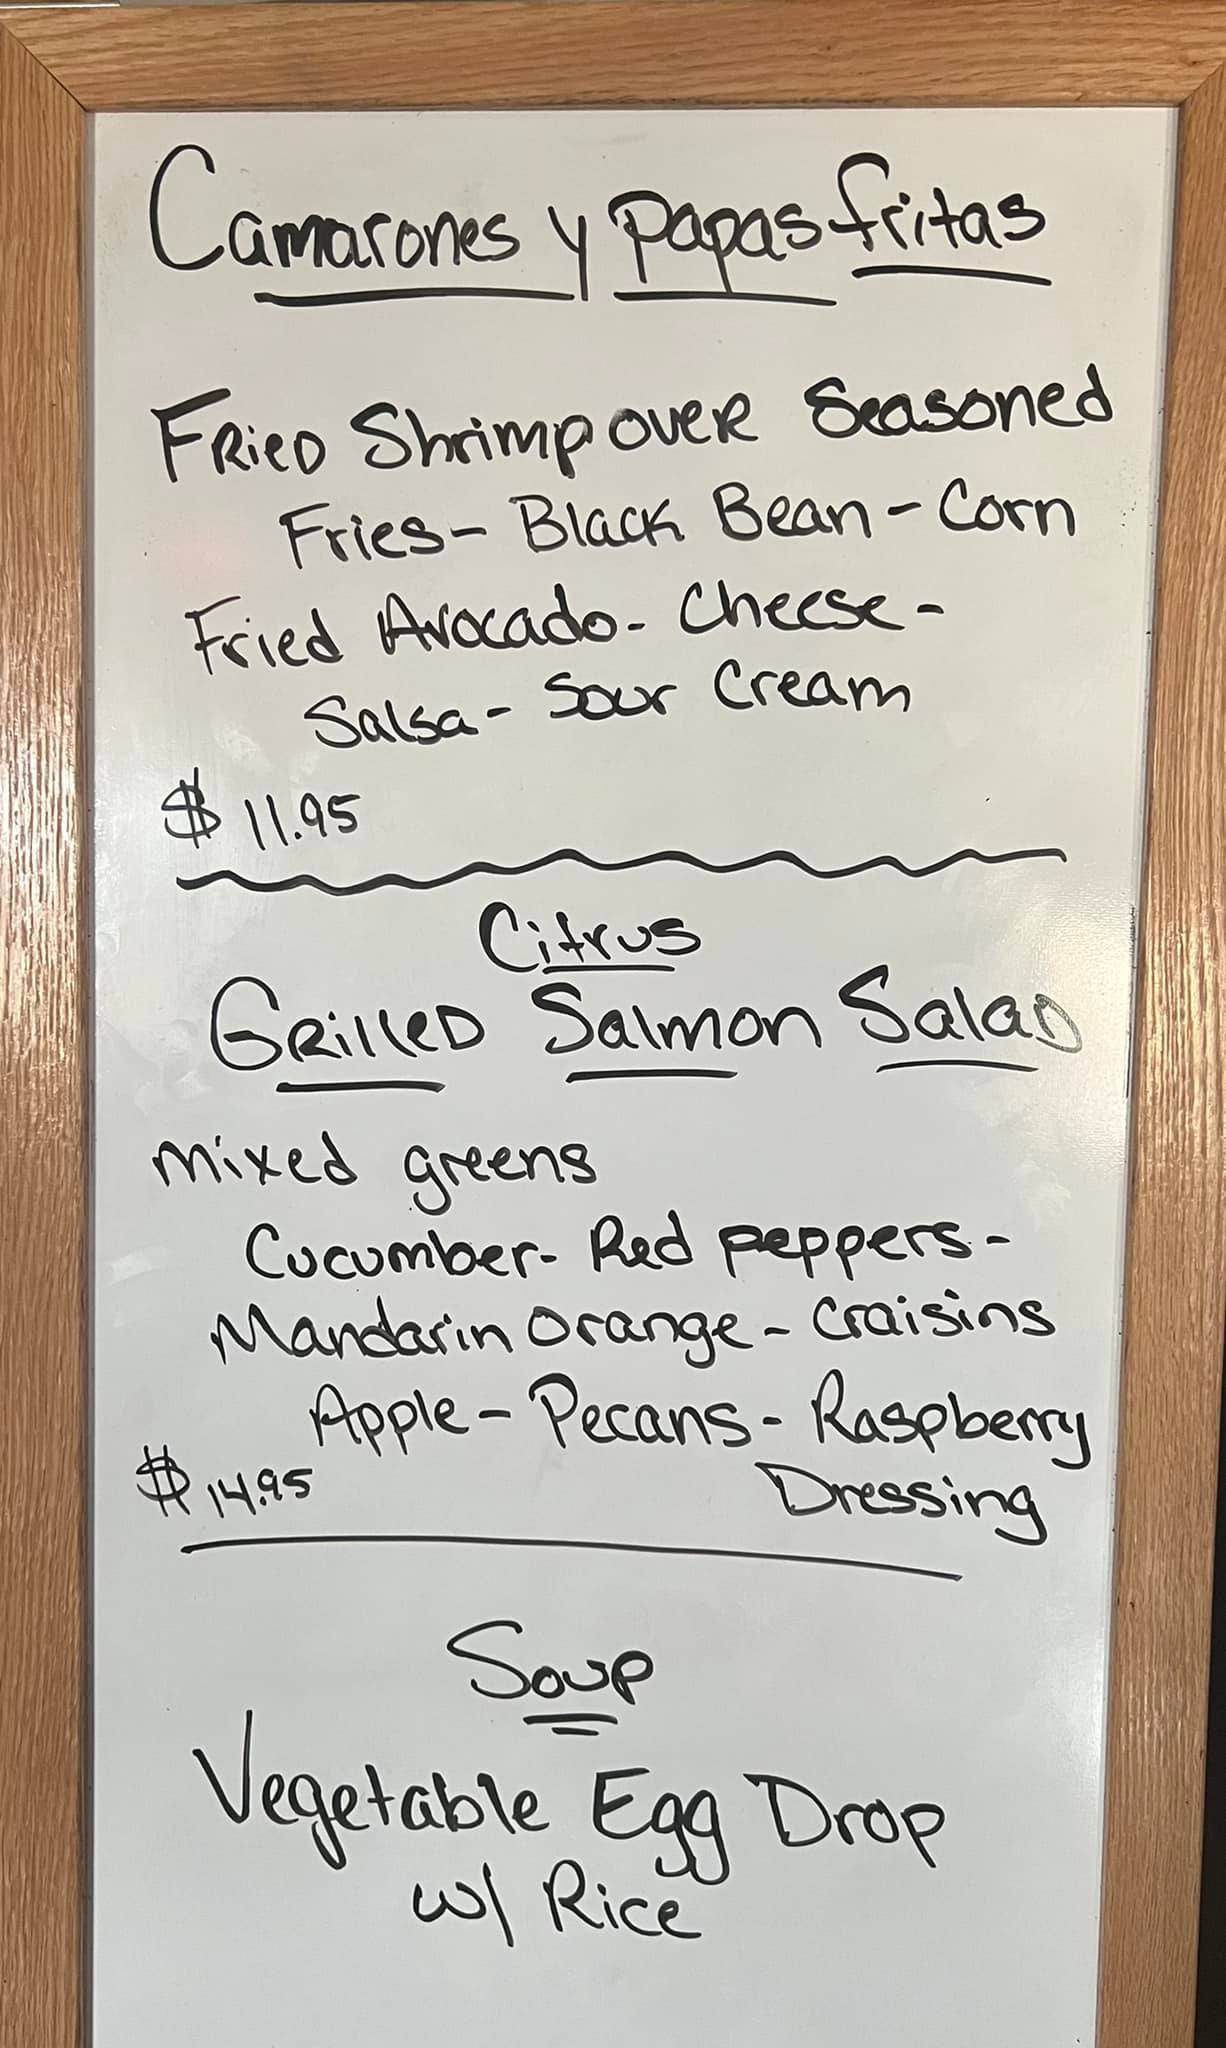 Camarones y papas fritas
Fried Shrimp over Seasoned
Fries - Black Bean - Corn
Fried Avocado - Cheese -
Salsa - Sour Cream
$ 11.95
Citrus
Grilled Salmon Salad
mixed greens
Cucumber - Red peppers -
Mandarin Orange - Craisins
Apple - Pecans - Raspberry
$ 14.95 Dressing
Soup
Vegetable Egg Drop
w/ Rice